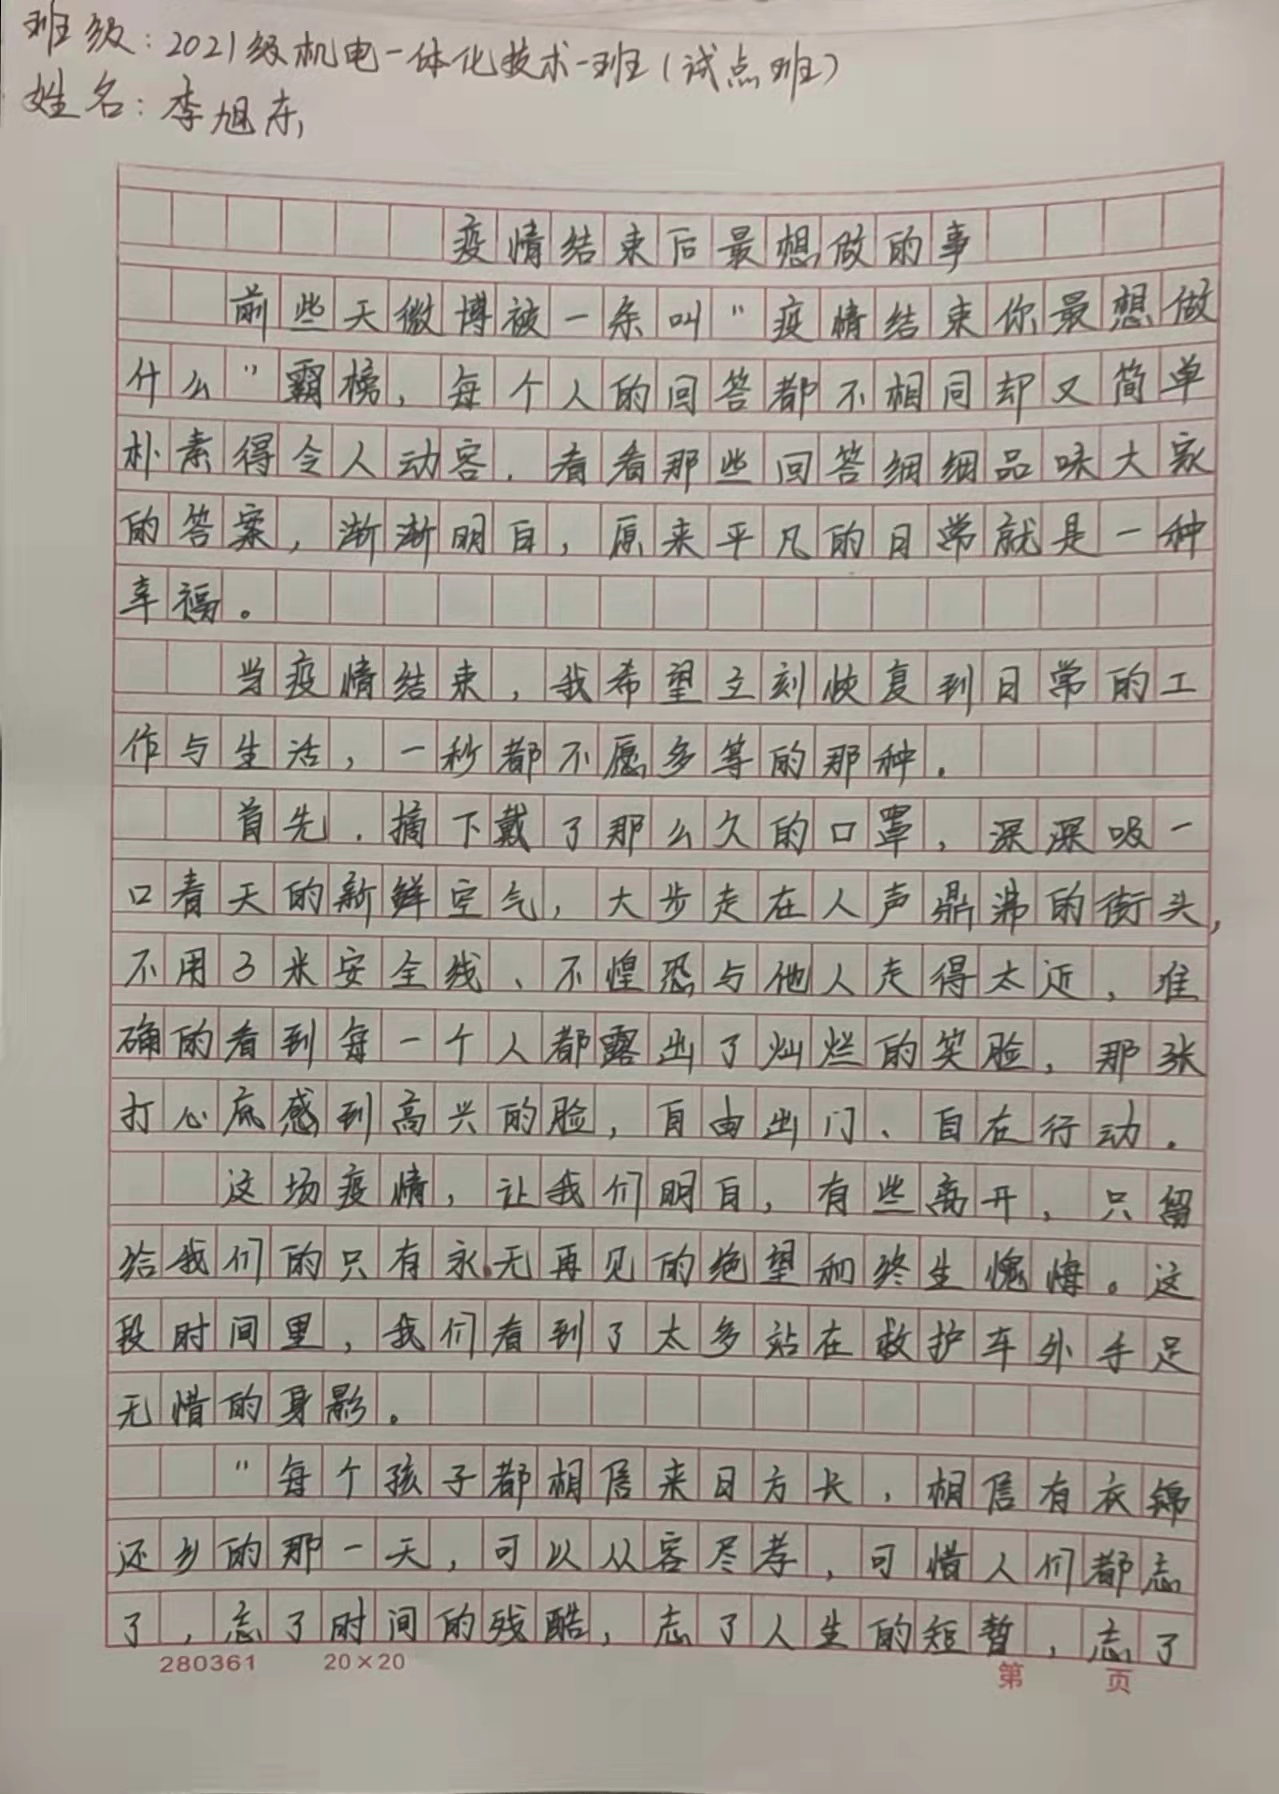 班级：2021级机电一体化技术一班（试点班）
姓名：李旭东
疫情结束后最想做的事
前些天微博被一条叫"疫情结束你最想做
什么"霸榜，每个人的回答都不相同却又简单
朴素得令人动容．看看那些回答细细品味大家
的答案，渐渐明白，原来平凡的日常就是一种
幸福。
当疫情结束，我希望立刻恢复到日常的工
作与生活，一秒都不愿多等的那种．
首先．摘下戴了那么久的口罩，深深吸一
口春天的新鲜空气，大步走在人声鼎沸的街头，
不用3米安全线、不惶恐与他人走得太近，准
确的看到每一个人都露出了灿烂的笑脸，那张
打心底感到高兴的脸，自由出门、自在行动．
这场疫情，让我们明白，有些离开，只留
给我们的只有永无再见的绝望和终生愧悔。这
段时间里，我们看到了太多站在救护车外手足
无惜的身影。
"每个孩子都相信来日方长，相信有衣锦
还乡的那一天，可以从容尽孝，可惜人们都忘
了，忘了时间的残酷，忘了人生的短暂，忘了
280361 20×20 第 页